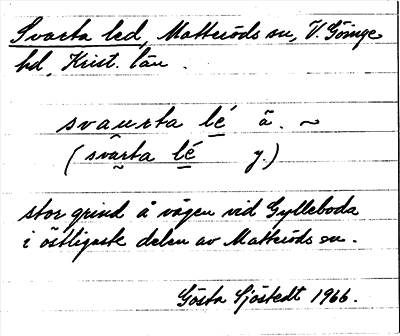 Svarta led, Matteröds sn, V. Göinge
hd, Krist. län.
svaurta lé ä. ~
(svârta lé y.)
stor grind å vägen vid Gylleboda
i östligaste delen av Matteröds sn.
Gösta Sjöstedt 1966.